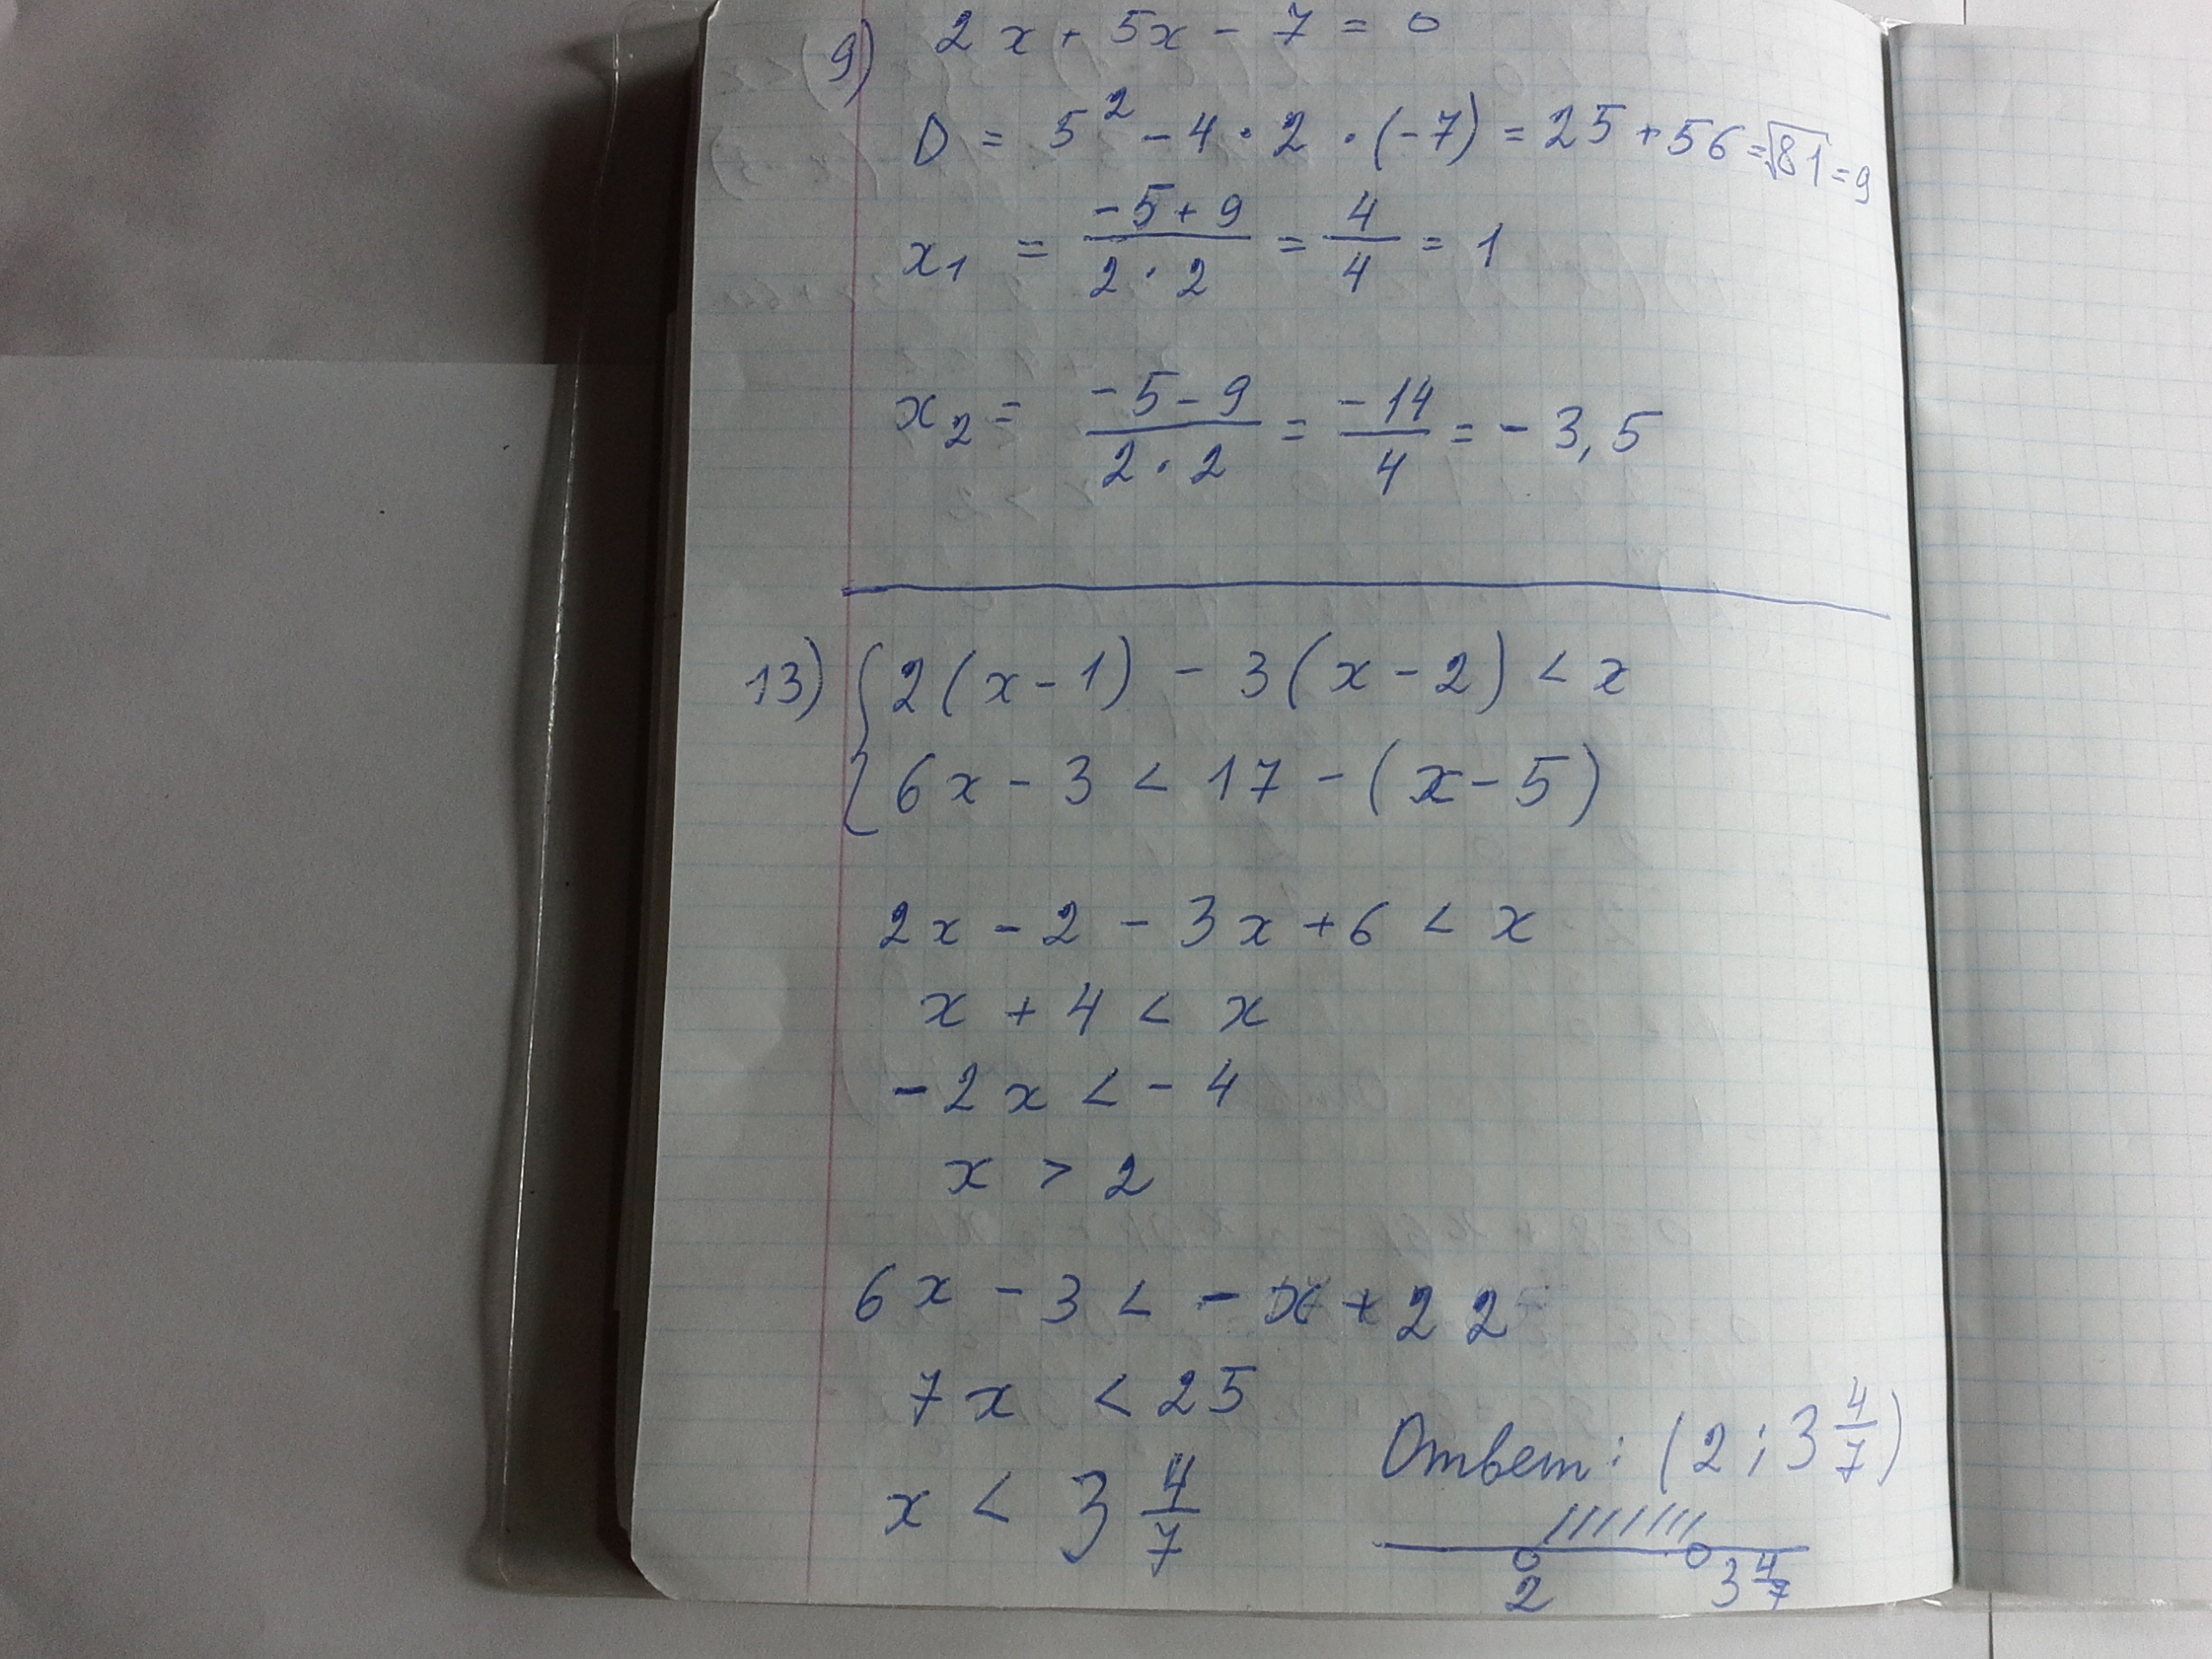 9) 2x + 5x - 7 = 0
D = 5² - 4 · 2 · (-7) = 25 + 56 = √81 = 9
x₁ = (-5 + 9)/(2 · 2) = 4/4 = 1
x₂ = (-5 - 9)/(2 · 2) = -14/4 = -3,5
13) { 2(x - 1) - 3(x - 2) < x
6x - 3 < 17 - (x - 5)
2x - 2 - 3x + 6 < x
x + 4 < x
-2x < -4
x > 2
6x - 3 < -x + 22
7x < 25
x < 3 4/7
Ответ: (2; 3 4/7)
2 3 4/7